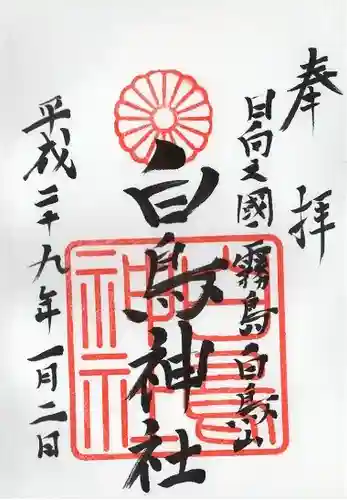 奉拝
日向之國霧島白鳥山
白鳥神社
平成二十九年一月二日
白鳥神社